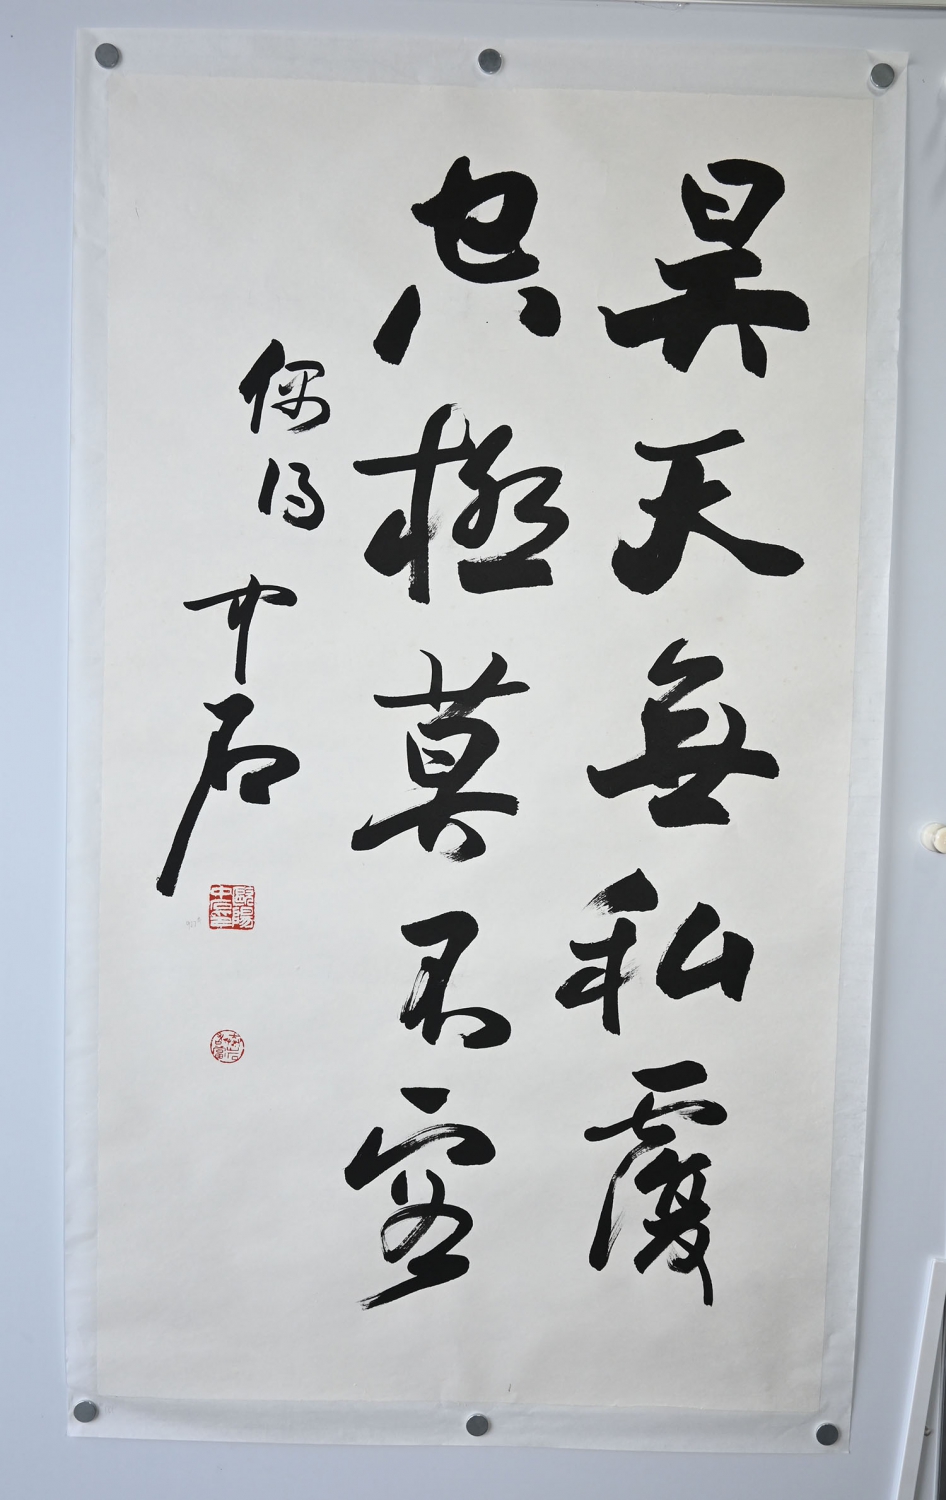 昊天無私覆
極莫不容
偶得 中石
歐陽
中石